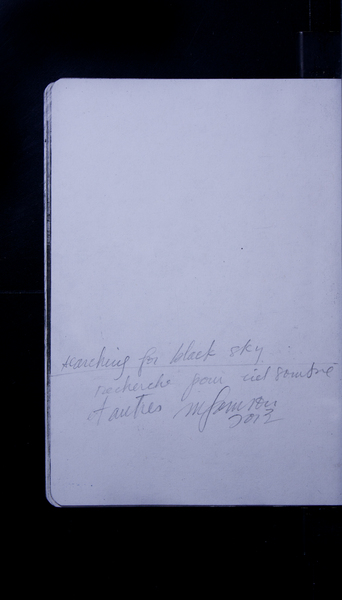 searching for black sky
recherche pour ciel sombre
et autres
2012